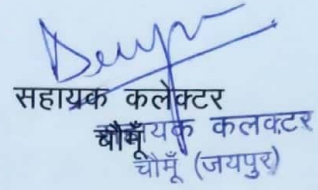 सहायक कलेक्टर
चौमूँ
यक कलक्टर
चौमूँ (जयपुर)